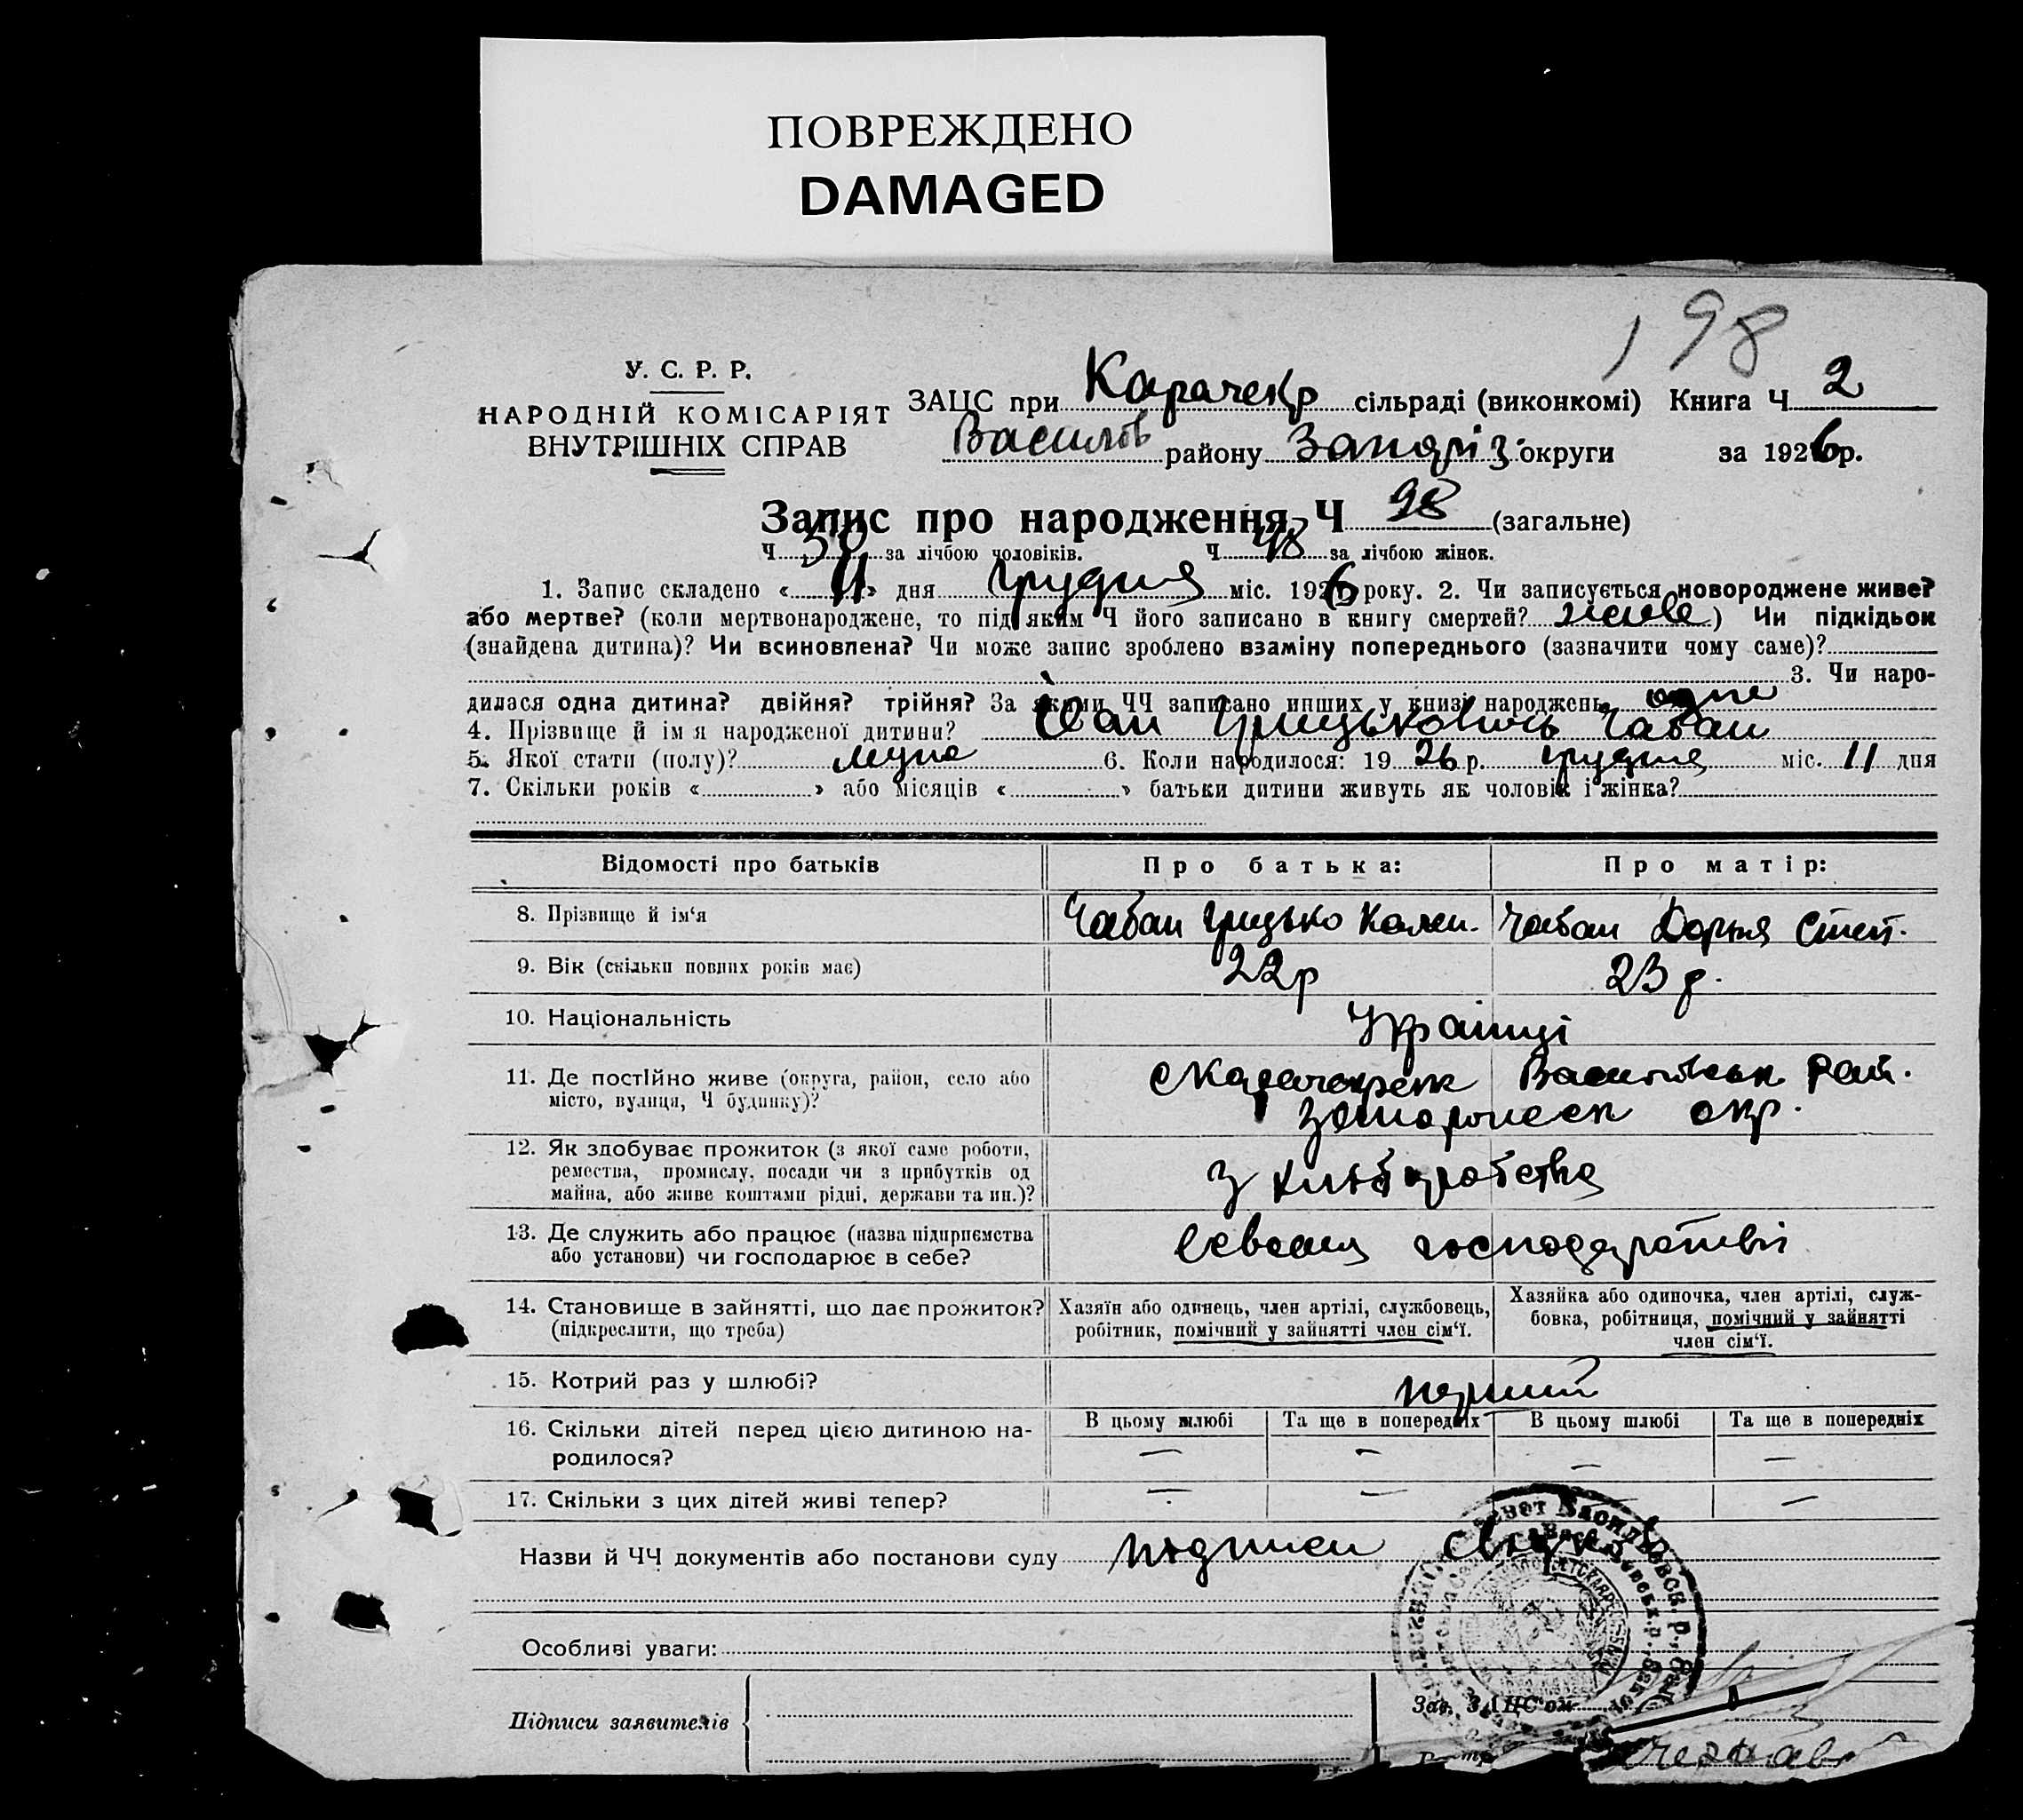 ПОВРЕЖДЕНО
DAMAGED
198
У. С. Р. Р.
НАРОДНІЙ КОМІСАРІЯТ
ВНУТРІШНІХ СПРАВ
ЗАЦС при Карачекр сільраді (виконкомі) Книга Ч 2
Василів району Запоріз округи за 1926 р.
Запис про народження Ч 98 (загальне)
Ч 50 за лічбою чоловіків. Ч 48 за лічбою жінок.
1. Запис складено « 11 » дня грудня міс. 1926 року. 2. Чи записується новороджене живе?
або мертве? (коли мертвонароджене, то під яким Ч його записано в книгу смертей? живе) Чи підкідьок
(знайдена дитина)? Чи всиновлена? Чи може запис зроблено взаміну попереднього (зазначити чому саме)?
3. Чи наро-
дилася одна дитина? двійня? трійня? За якими ЧЧ записано инших у книзі народжень одне
4. Прізвище й ім я народженої дитини? Іван Грицькович Чабан
5. Якої стати (полу)? муже 6. Коли народилося: 19 26 р. грудня міс. 11 дня
7. Скільки років « » або місяців « » батьки дитини живуть як чоловік і жінка?
Відомості про батьків Про батька: Про матір:
8. Прізвище й ім‘я Чабан Грицько Кален. Чабан Дарья Степ.
9. Вік (скільки повних років має) 22 р 23 р.
10. Національність Українці
11. Де постійно живе (округа, район, село або
місто, вулиця, Ч будинку)?
Василівськ рай.
окр.
12. Як здобуває прожиток (з якої саме роботи,
ремества, промислу, посади чи з прибутків од
майна, або живе коштами рідні, держави та ин.)?
З хліборобства
13. Де служить або працює (назва підприємства
або установи) чи господарює в себе?
господарстві
14. Становище в зайнятті, що дає прожиток?
(підкреслити, що треба)
Хазяїн або одинець, член артілі, службовець,
робітник, помічний у зайнятті член сім‘ї.
Хазяйка або одиночка, член артілі, служ-
бовка, робітниця, помічний у зайнятті
член сім‘ї.
15. Котрий раз у шлюбі? перший
16. Скільки дітей перед цією дитиною на-
родилося?
В цьому шлюбі Та ще в попередніх В цьому шлюбі Та ще в попередніх
— — — —
17. Скільки з цих дітей живі тепер? — — — —
Назви й ЧЧ документів або постанови суду подписи
Особливі уваги:
Підписи заявителів
Зав. ЗАЦС'ом